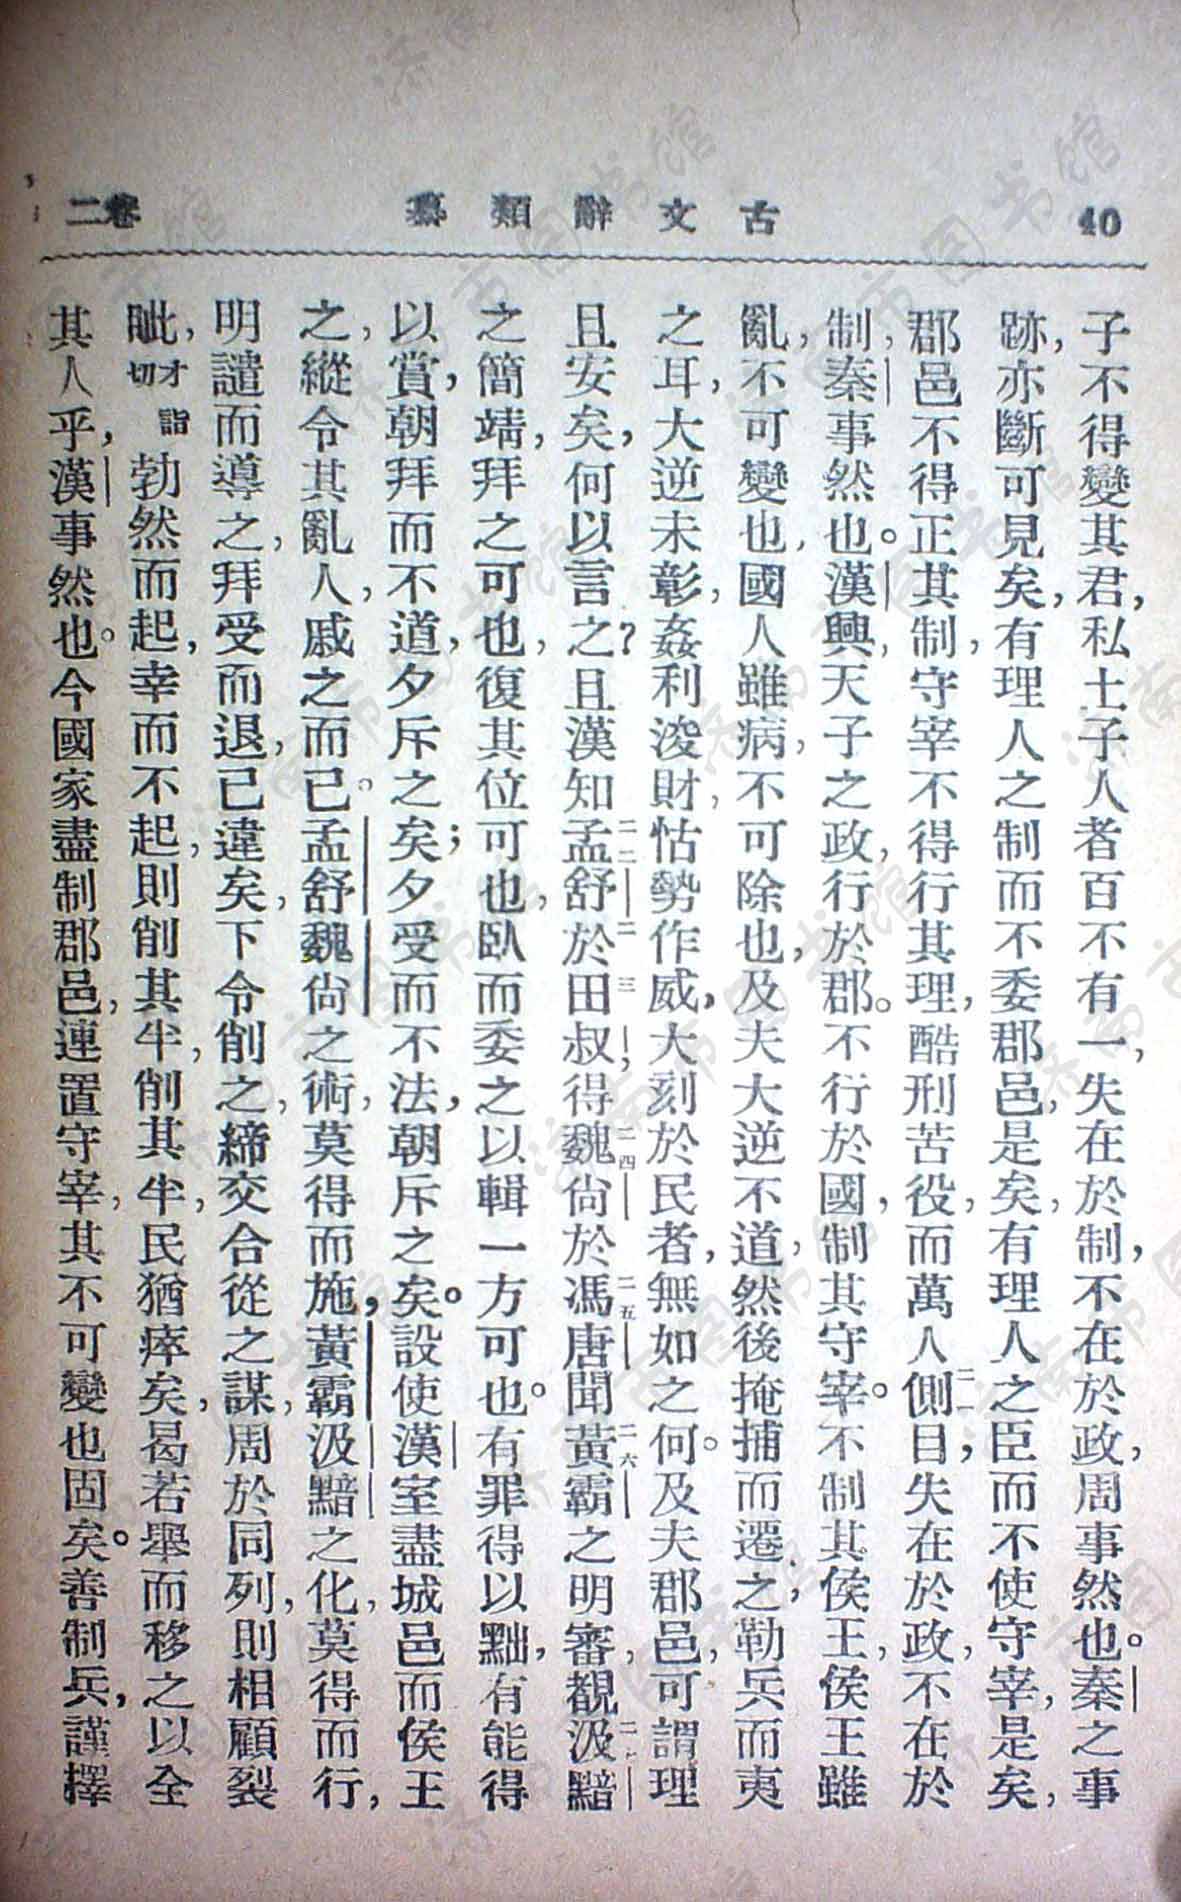 40
古文辭類纂
卷二
子不得變其君，私土子人者百不有一，失在於制，不在於政，周事然也。秦之事
跡，亦斷可見矣，有理人之制而不委郡邑，是矣，有理人之臣而不使守宰，是矣，
郡邑不得正其制，守宰不得行其理，酷刑苦役，而萬人側二一目，失在於政，不在於
制，秦事然也。漢興，天子之政，行於郡。不行於國，制其守宰。不制其侯王，侯王雖
亂，不可變也，國人雖病，不可除也，及夫大逆不道，然後掩捕而遷之，勒兵而夷
之耳，大逆未彰，姦利浚財，怙勢作威，大刻於民者，無如之何。及夫郡邑，可謂理
且安矣，何以言之？且漢知孟二二舒於二三田叔；得魏二四尙於馮二五唐聞黃二六霸之明審，覩汲二七黯
之簡靖，拜之可也，復其位可也，臥而委之以輯一方可也。有罪得以黜，有能得
以賞，朝拜而不道，夕斥之矣；夕受而不法，朝斥之矣。設使漢室盡城邑而侯王
之，縱令其亂人，戚之而已。孟舒魏尙之術，莫得而施，黃霸汲黯之化，莫得而行，
明譴而導之，拜受而退，已違矣，下令削之，締交合從之謀，周於同列，則相顧裂
眦，才詣切勃然而起，幸而不起，則削其半，削其半，民猶瘁矣，曷若舉而移之以全
其人乎，漢事然也。今國家盡制郡邑，連置守宰，其不可變也固矣。善制兵，謹擇